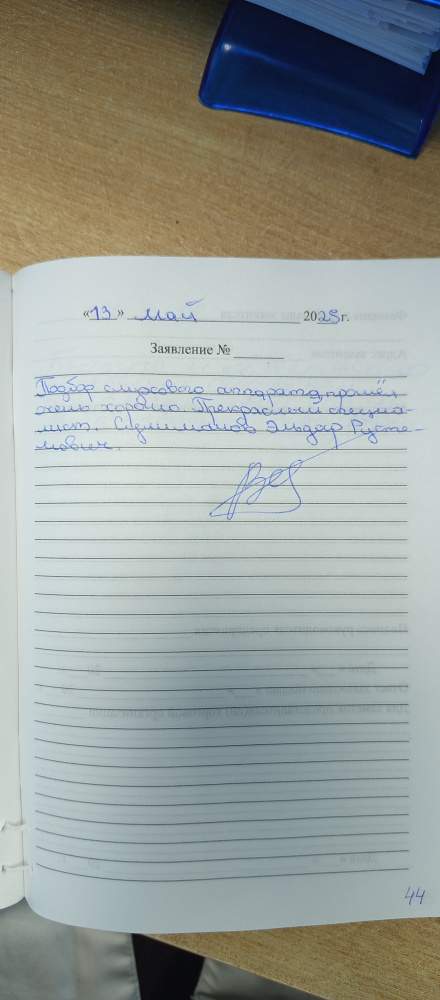 «13» май 2025 г.
Заявление №
Подбор слухового аппарата, прошёл
очень хорошо. Прекрасный специа-
лист, Сулейманов Эльдар Русте-
мович.
44